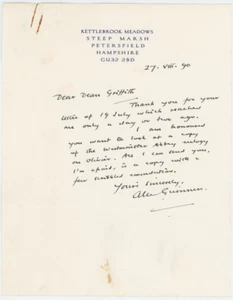 KETTLEBROOK MEADOWS
STEEP MARSH
PETERSFIELD
HAMPSHIRE
GU32 2BD
27. VIII. 90
Dear Dean Griffith
Thank you for your
letter of 19 July which reached
me only a day or two ago.
I am honoured
you want to look at a copy
of the Westminster Abbey eulogy
on Olivier. All I can send you,
I'm afraid, is a copy with a
few scribbled emendations.
Yours sincerely,
Alec Guinness